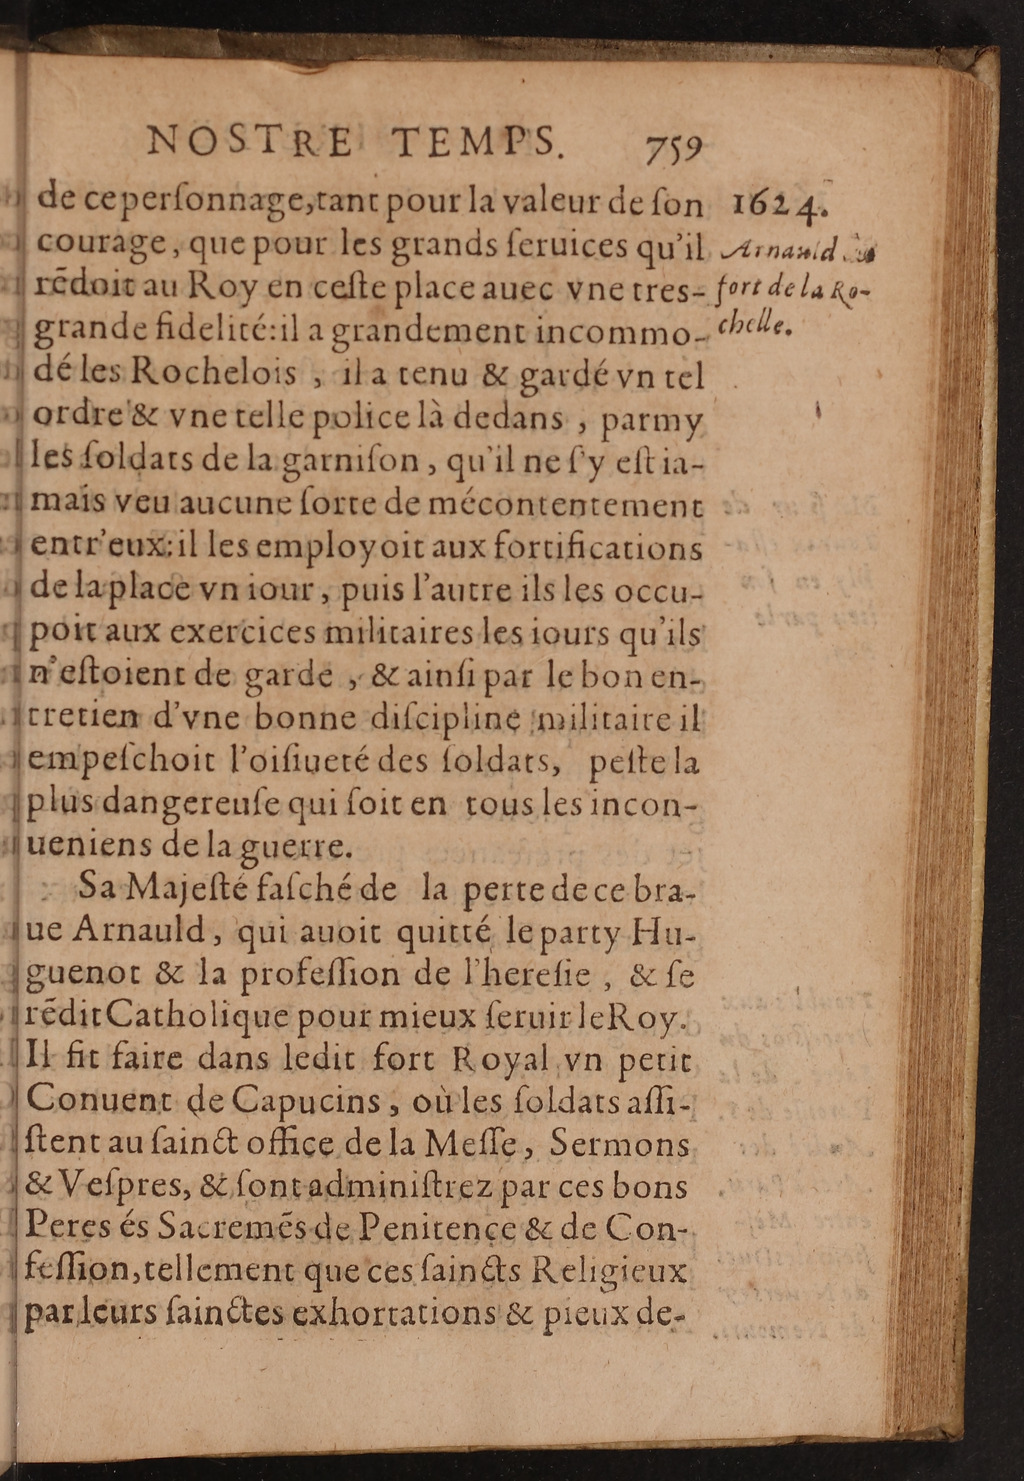 NOSTRE TEMPS. 759
de ce perſonnage, tant pour la valeur de ſon
courage, que pour les grands ſeruices qu'il
rēdoit au Roy en ceſte place auec vne tres-
grande fidelité: il a grandement incommo-
dé les Rochelois, il a tenu & gardé vn tel
ordre & vne telle police là dedans, parmy
les ſoldats de la garniſon, qu'il ne ſ'y eſt ia-
mais veu aucune ſorte de mécontentement
entr'eux: il les employoit aux fortifications
de la place vn iour, puis l'autre ils les occu-
poit aux exercices militaires les iours qu'ils
n'eſtoient de garde, & ainſi par le bon en-
tretien d'vne bonne diſcipline militaire il
empeſchoit l'oiſiueté des ſoldats, peſte la
plus dangereuſe qui ſoit en tous les incon-
ueniens de la guerre.
Sa Majeſté faſché de la perte de ce bra-
ue Arnauld, qui auoit quitté le party Hu-
guenot & la profeſſion de l'hereſie, & ſe
rēdit Catholique pour mieux ſeruir le Roy.
Il fit faire dans ledit fort Royal vn petit
Conuent de Capucins, où les ſoldats aſſi-
ſtent au ſainct office de la Meſſe, Sermons
& Veſpres, & ſont adminiſtrez par ces bons
Peres és Sacremēs de Penitence & de Con-
feſſion, tellement que ces ſaincts Religieux
par leurs ſainctes exhortations & pieux de-
1624.
Arnauld
fort de la Ro-
chelle.